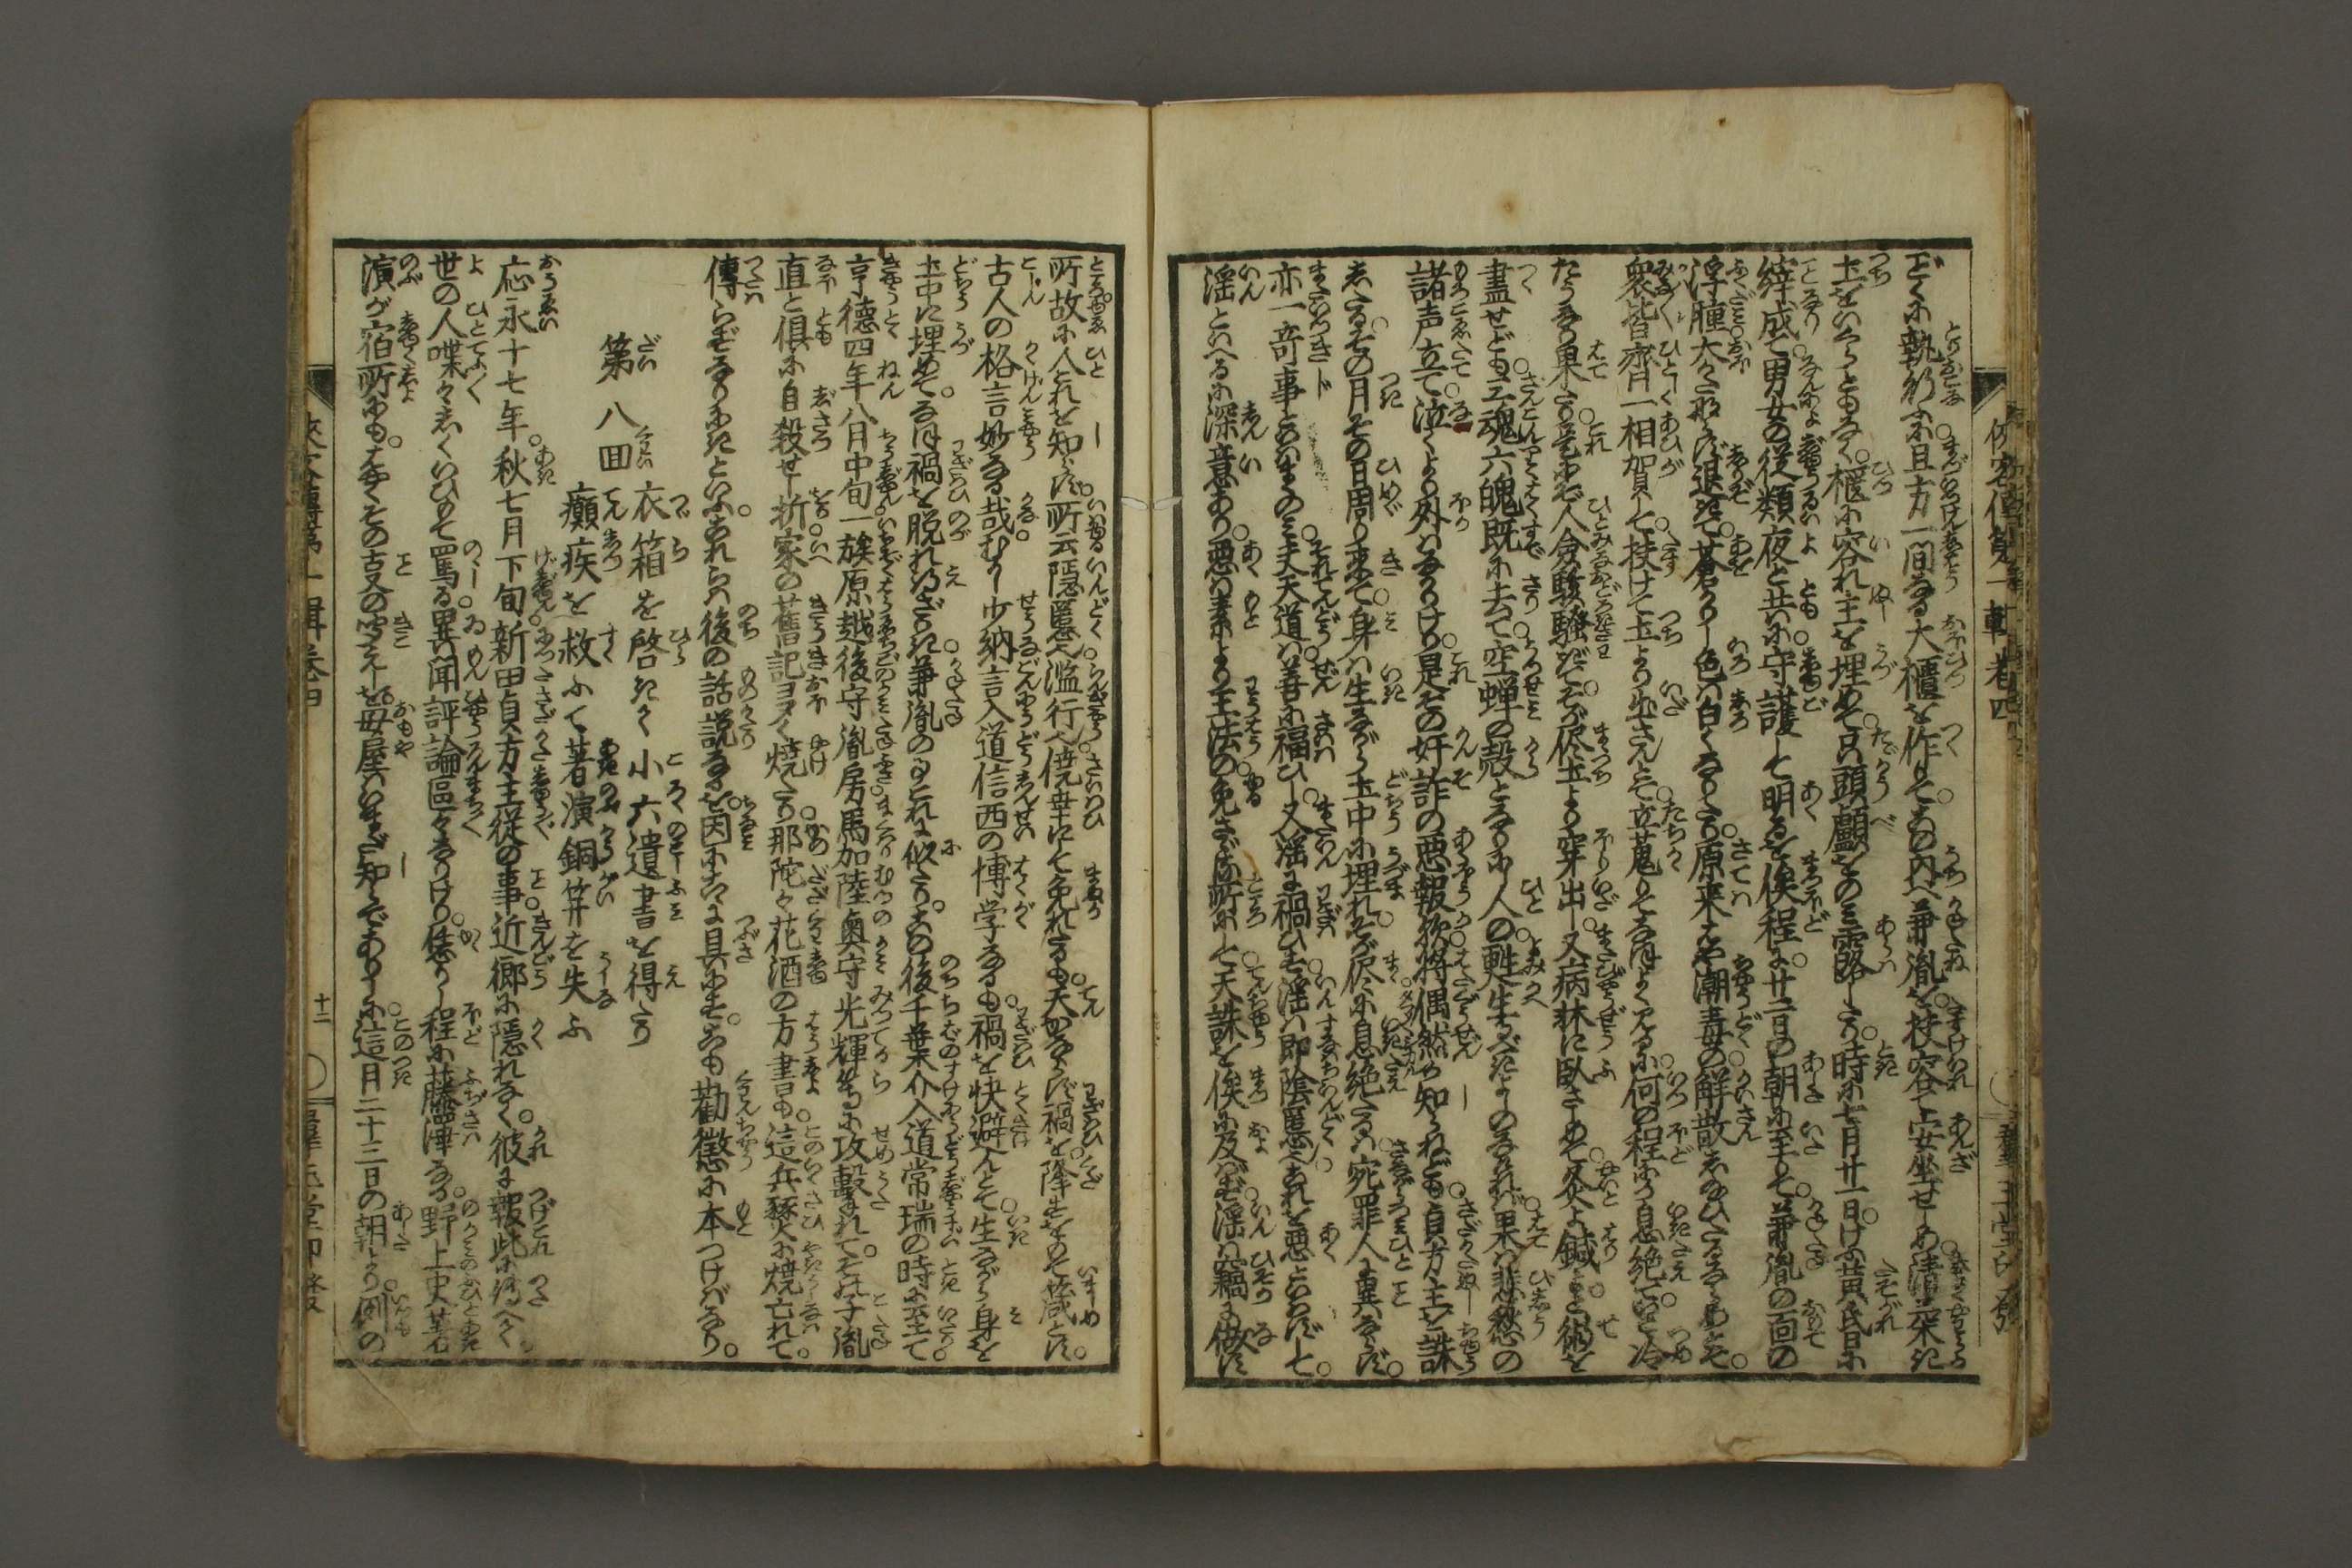 どくに執行ふ。且方一間なる大櫃を作りて。その内へ兼胤を扶容れ安坐せしめ清潔き
土をいくらともなく。櫃に容れ主を埋めて只頭顱をのみ露したり。時に七月廿一日。けふ黄昏に
縡成て男女の従類夜と共に守護して明るを俟程に。廿二日の朝に至りて。兼胤の面の
浮腫大かた那ば退きて。蒼かりし色は白くなりたり。原来はや潮毒の解散しぬひたるならめとて。
衆皆齊一相賀して。扶けて土より出さんとて。立蒐りてなほよく見るに。何の程にか息絶ていと冷
たうなり果たり。是にぞ人会駭騒ぎて。そが侭土より穿出し。又病牀に臥さしめて灸よ鍼よと術を
盡せども三魂六魄既に去て。空蝉の殻となりし人の。甦生すべきよしのなければ。果は悲愁の
諸声立て泣くより外はなかりけり。是その奸詐の悪報欤。将偶然か知らねども。貞方主を誅
しまゐらせその月その日周り来て。身は生ながら土中に埋れそが侭に息絶たるは。死罪人に異ならず。
亦一奇事といふのみ。夫天道は善に福ひし。又淫に禍ひす。淫は即陰慝也。これを悪といはずして。
淫といへるに深意あり。悪は素より王法の。免さゞる所にして天誅を俟に及ばず。淫は竊に做す
所故に人これを知らず。所云隠慝也濫行也。僥幸にして免れたるも。天かならず禍を。降すをもて箴とす。
古人の格言妙なる哉。むかし少納言入道信西の博学なるも。禍を快避んとて。生ながら身を
土中に埋めて。なほ禍を脱れ得ざりき。兼胤の事これに似たり。この後千葉介入道常瑞の時に至て。
亨徳四年八月中旬。一族原越後守胤房。馬加陸奥守光輝等に攻撃れて。その子胤
直と倶に自殺せし折。家の舊記ヨヲく焼たり。那陀々花酒の方書も。這兵豚火に焼亡れて。
傳らずなりにきといふ。これらは後の話説なるを。因にこゝに具にす。こも勧懲に本つけばなり。
第八回
衣箱を啓きく小六遺書を得たり
癲疾を救ふて著演銅笄を失ふ
応永十七年。秋七月下旬。新田貞方主従の事。近郷に隠れなく。彼に報此に傳へく
世の人喋々しくいひもて罵る異聞評論區々なりけり。恁りし程に藤澤なる。野上史著
演が宿所にも。はやくその事の聞えしを。母屋はいまだ知らでありしに。這月二十三日の朝より。例の
十二